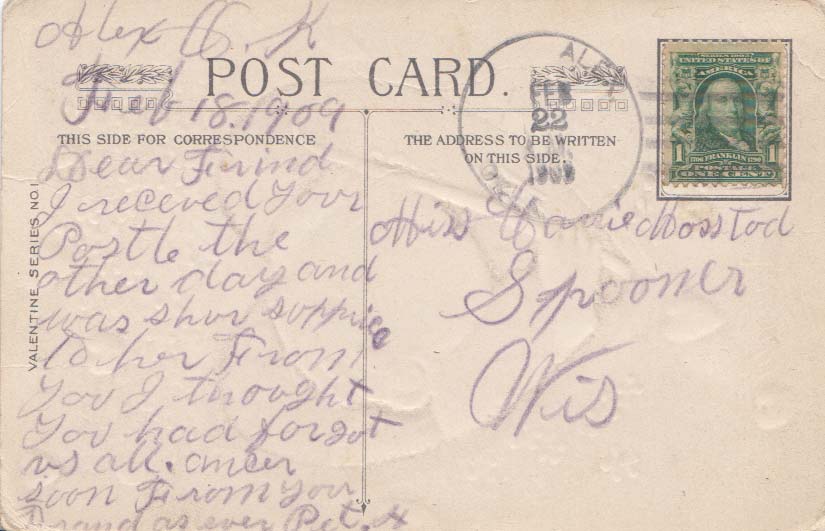 Alex O. K
Feb 18. 1909
POST CARD.
THIS SIDE FOR CORRESPONDENCE
Dear Frind
I receved your
Postle the
other day and
was shur
to her From
you I thought
you had forgot
us all. ancer
soon From your
as ever Pet. H
VALENTINE SERIES NO. 1
THE ADDRESS TO BE WRITTEN
ON THIS SIDE.
FEB
22
1909
OKLA
SERIES 1902
UNITED STATES OF
AMERICA
1706 FRANKLIN 1790
1 POSTAGE 1
ONE CENT
Miss Carrie Mosstod
Spooner
Wis